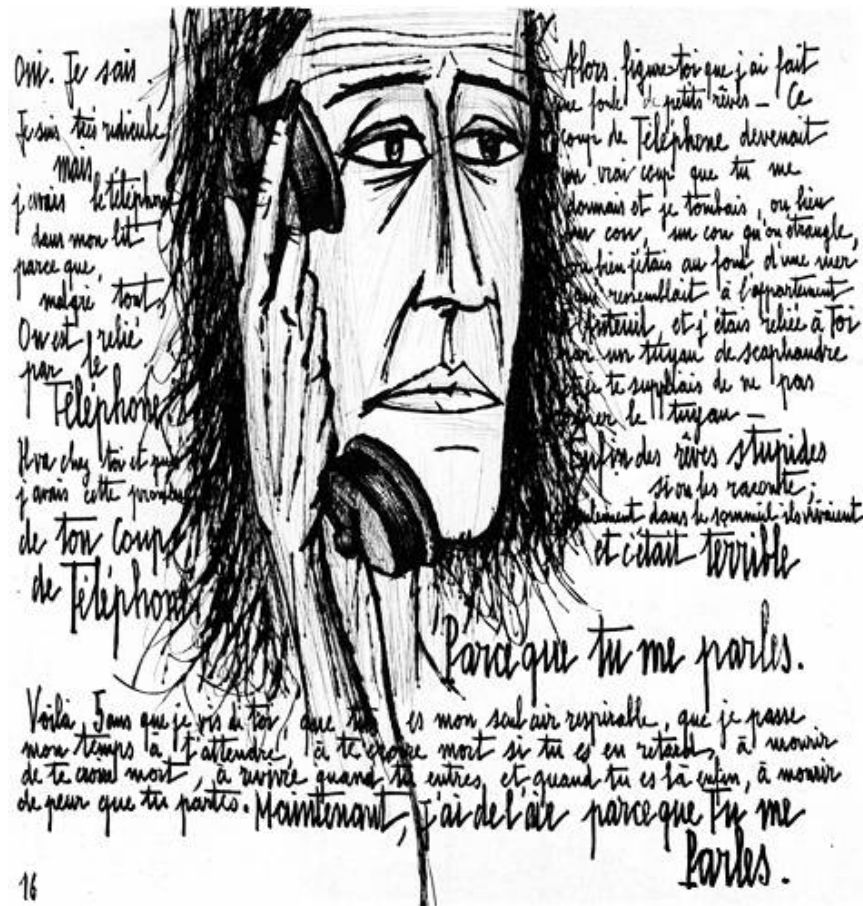 Oui. Je sais.
Je suis très ridicule
mais
j'avais le téléphone
dans mon lit
parce que,
malgré tout,
On est relié
par le
Téléphone.
Il va chez toi et puis
j'avais cette promesse
de ton Coup
de Téléphone.
Alors, figure-toi que j'ai fait
une foule de petits rêves — Ce
coup de Téléphone devenait
un vrai coup que tu me
donnais et je tombais, ou bien
un cou, un cou qu'on étrangle,
ou bien j'étais au fond d'une mer
qui ressemblait à l'appartement
d'Auteuil, et j'étais reliée à Toi
par un tuyau de scaphandre
et je te suppliais de ne pas
couper le tuyau —
Enfin des rêves stupides
si on les raconte;
seulement dans le sommeil ils vivaient
et c'était terrible
Parce que tu me parles.
Voilà, 5 ans que je vis de toi, que tu es mon seul air respirable, que je passe
mon temps à t'attendre, à te croire mort si tu es en retard, à mourir
de te croire mort, à revivre quand tu entres, et quand tu es là enfin, à mourir
de peur que tu partes. Maintenant, j'ai de l'air parce que Tu me
Parles.
16